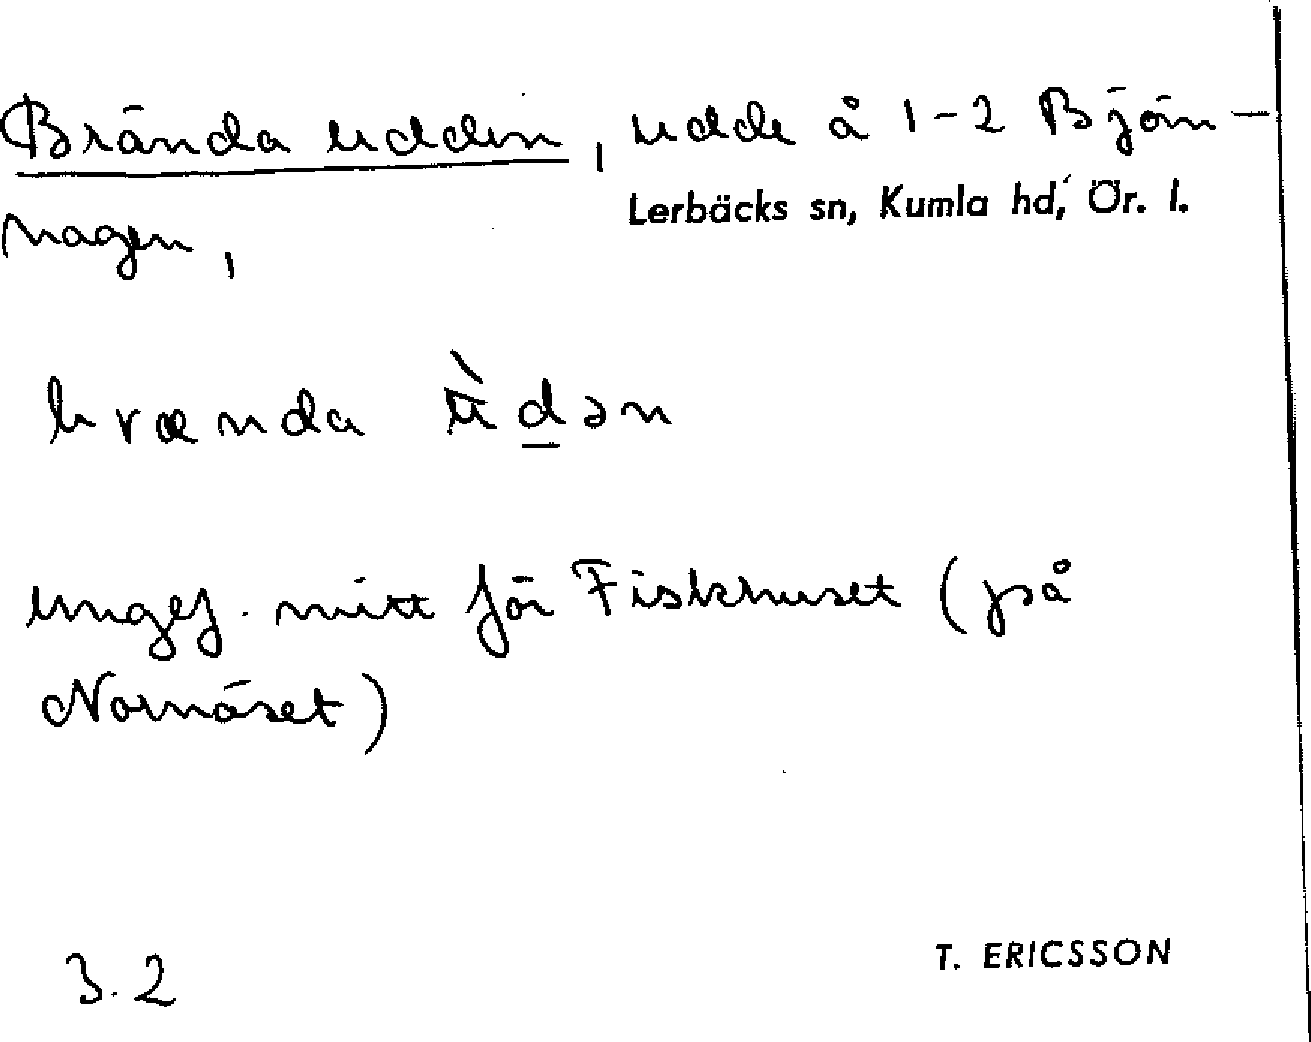 Brända udden, udde å 1-2 Björn-
Lerbäcks sn, Kumla hd, Ör. l.
hagen,
brænda ùdən
ungef. mitt för Fiskhuset (på
Nornäset)
3.2
T. ERICSSON